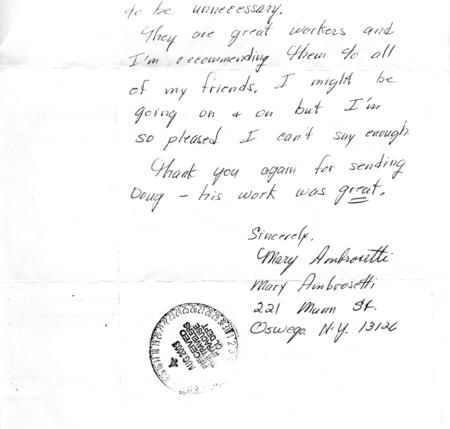 to be unnecessary.
They are great workers and
I'm recommending them to all
of my friends. I might be
going on + on but I'm
so pleased I can't say enough
Thank you again for sending
Doug – his work was great.
Sincerely,
Mary Ambrosetti
Mary Ambrosetti
221 Munn St.
Oswego N.Y. 13126
RECEIVED
AUG 2003
TRAVELERS
SYRACUSE
CL DEPT